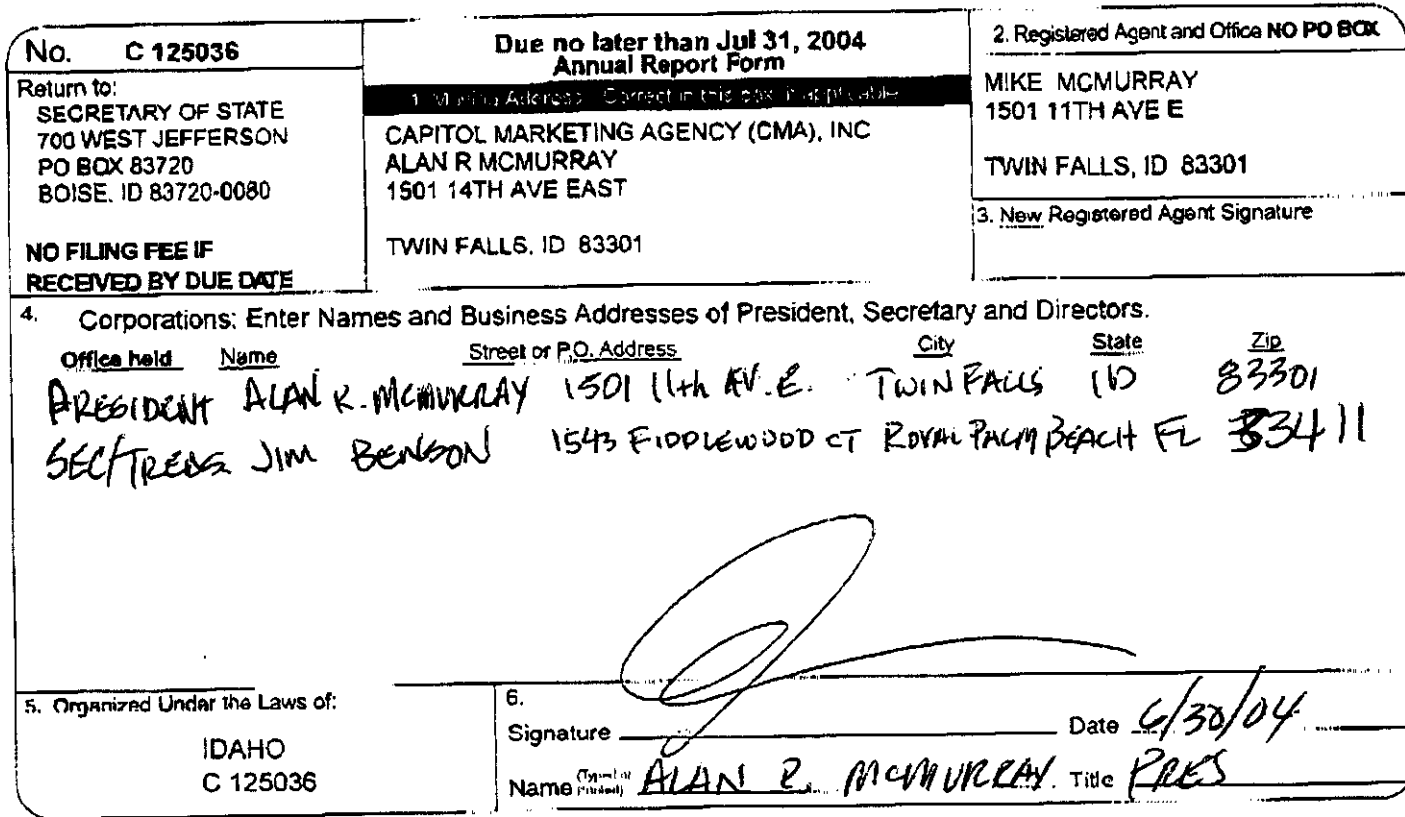 No. C 125036
Return to:
SECRETARY OF STATE
700 WEST JEFFERSON
PO BOX 83720
BOISE, ID 83720-0080
NO FILING FEE IF
RECEIVED BY DUE DATE
Due no later than Jul 31, 2004
Annual Report Form
1. Mailing Address: Correct in this box if applicable
CAPITOL MARKETING AGENCY (CMA), INC
ALAN R MCMURRAY
1501 14TH AVE EAST
TWIN FALLS, ID 83301
2. Registered Agent and Office NO PO BOX
MIKE MCMURRAY
1501 11TH AVE E
TWIN FALLS, ID 83301
3. New Registered Agent Signature
4. Corporations: Enter Names and Business Addresses of President, Secretary and Directors.
Office held Name Street or P.O. Address City State Zip
PRESIDENT ALAN R. MCMURRAY 1501 11th AV. E. TWIN FALLS ID 83301
SEC/TREAS JIM BENSON 1543 FIDDLEWOOD CT ROYAL PALM BEACH FL 33411
5. Organized Under the Laws of:
IDAHO
C 125036
6.
Signature Date 6/30/04
Name (Typed or Printed) ALAN R. MCMURRAY Title PRES